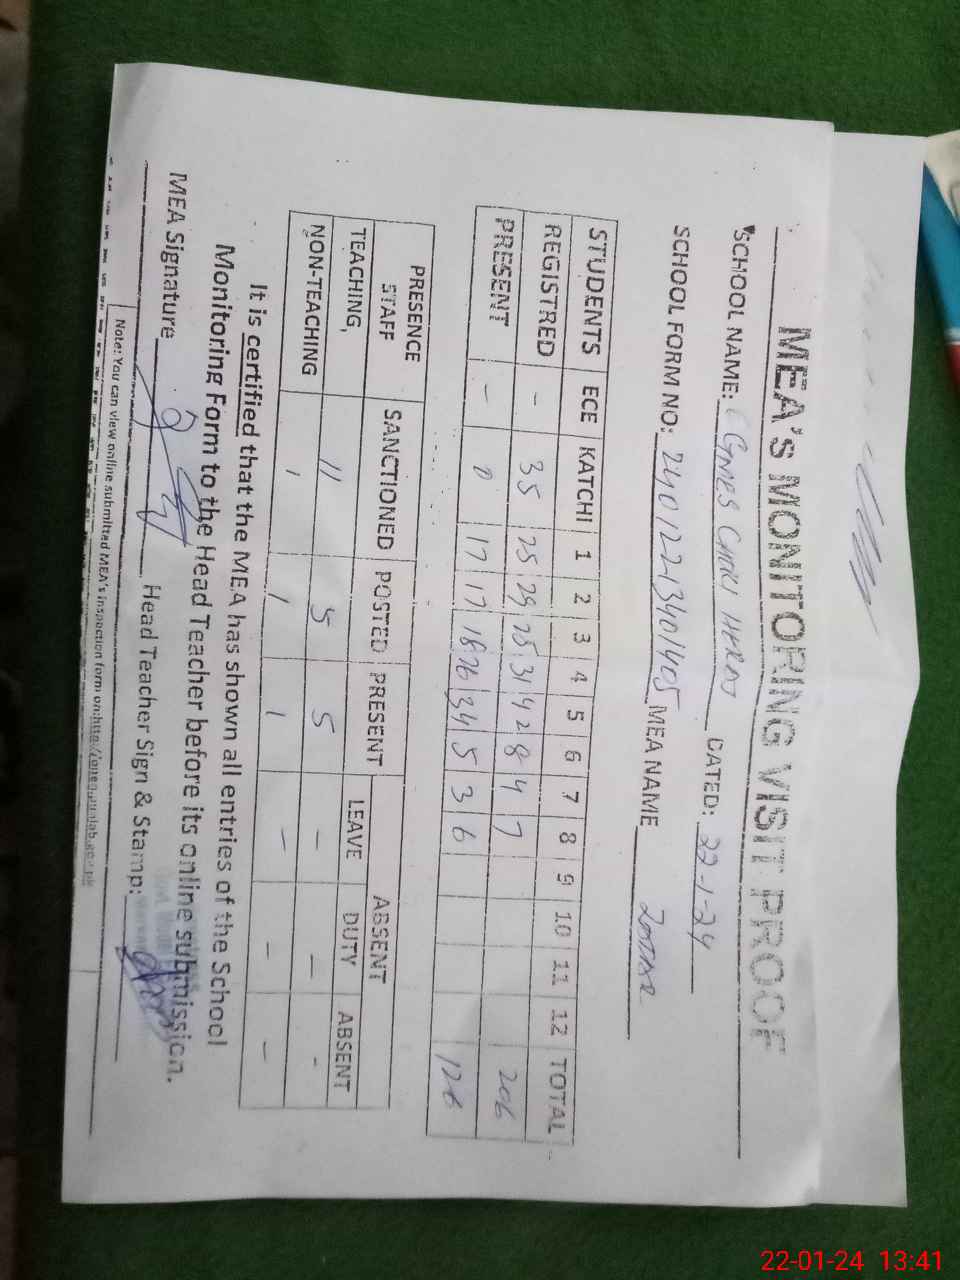 MEA's MONITORING VISIT PROOF
SCHOOL NAME: DATED: 22-1-24
SCHOOL FORM NO: MEA NAME
STUDENTS ECE KATCHI 1 2 3 4 5 6 7 8 9 10 11 12 TOTAL
REGISTRED - 35 25 29 25 31 42 8 4 7 206
PRESENT - 0 17 17 18 26 34 5 3 6 126
PRESENCE STAFF SANCTIONED POSTED PRESENT ABSENT
LEAVE DUTY ABSENT
TEACHING, 11 5 5 - - -
NON-TEACHING 1 1 1 - - -
It is certified that the MEA has shown all entries of the School
Monitoring Form to the Head Teacher before its online submission.
MEA Signature Head Teacher Sign & Stamp:
Note: You can view online submitted MEA's inspection form on:
22-01-24 13:41